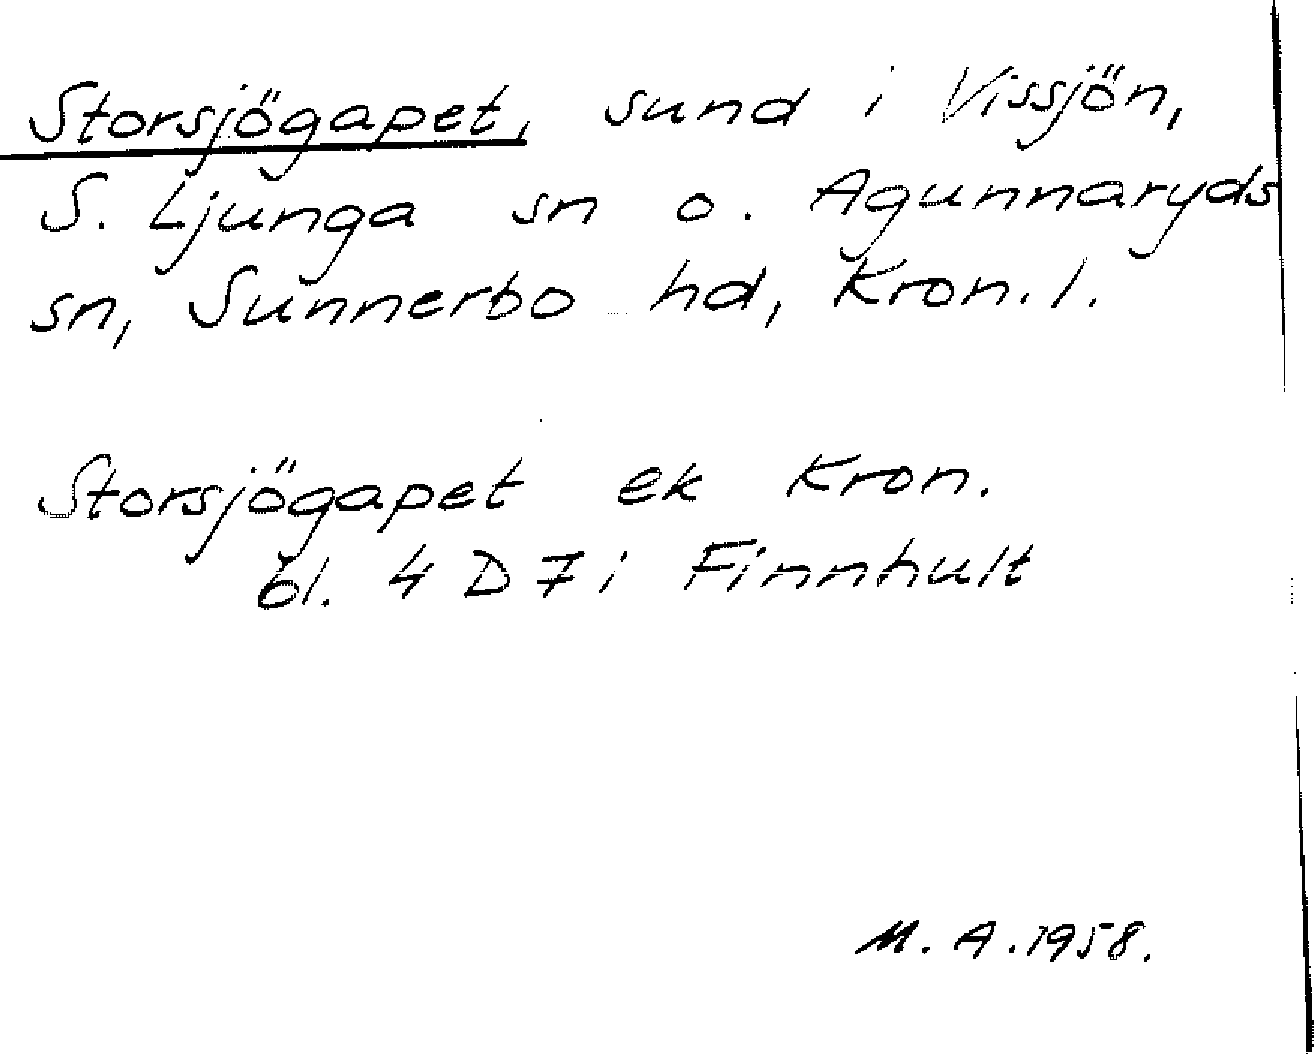 Storsjögapet, sund i Vissjön,
S. Ljunga sn o. Agunnaryds
sn, Sunnerbo hd, Kron. l.
Storsjögapet ek Kron.
bl. 4 D 7 i Finnhult
M. A. 1958.